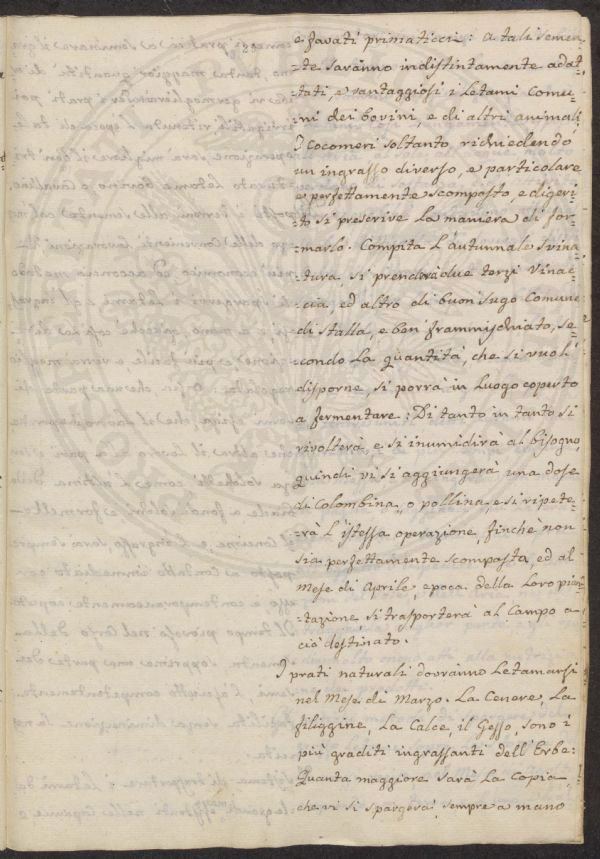 e favati primaticci: a tali semen-
-te saranno indistintamente adat-
-tati, e vantaggiosi i Letami Comu-
-ni dei bovini, e di altri animali.
I Cocomeri soltanto, richiedendo
un ingrasso diverso, e particolare
e perfettamente scomposto, e digeri-
-to si prescrive la maniera di for-
-marlo. Compita l'autunnale svina-
-tura, si prenderà due terzi vinac-
-cia, ed altro di buon sugo Comune
di stalla, e ben frammischiato, se-
-condo la quantità, che si vuol
disporne, si porrà in luogo coperto
a fermentare: Di tanto in tanto si
rivolterà, e si inumidirà al bisogno,
quindi vi si aggiungerà una dose
di Colombina, o pollina, e si ripete-
-rà l'istessa operazione, finchè non
sia perfettamente scomposta, ed al
Mese di Aprile, epoca della loro pian-
-tazione, si trasporterà al Campo a
ciò destinato.
I prati naturali dovranno Letamarsi
nel Mese di Marzo. La Cenere, La
filiggine, La Calce, il Gesso, sono i
più graditi ingrassanti dell'Erbe:
Quanta maggiore sarà la Copia
che vi si spargerà, sempre a mano